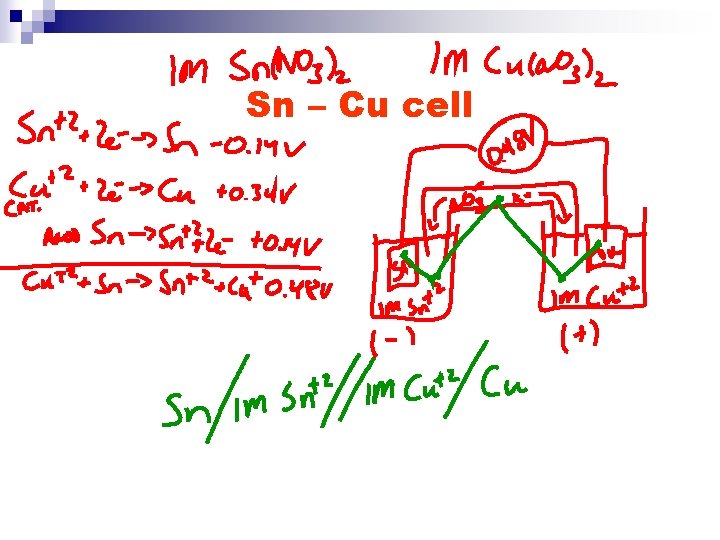 1M Sn(NO3)2 1M Cu(NO3)2
Sn – Cu cell
Sn+2 + 2e- → Sn -0.14V
Cu+2 + 2e- → Cu +0.34V
CAT.
Sn → Sn+2 + 2e- +0.14V
Cu+2 + Sn → Sn+2 + Cu + 0.48V
0.48V
Sn
1M Sn+2
1M Cu+2
(-)
(+)
Sn/1M Sn+2//1M Cu+2/Cu